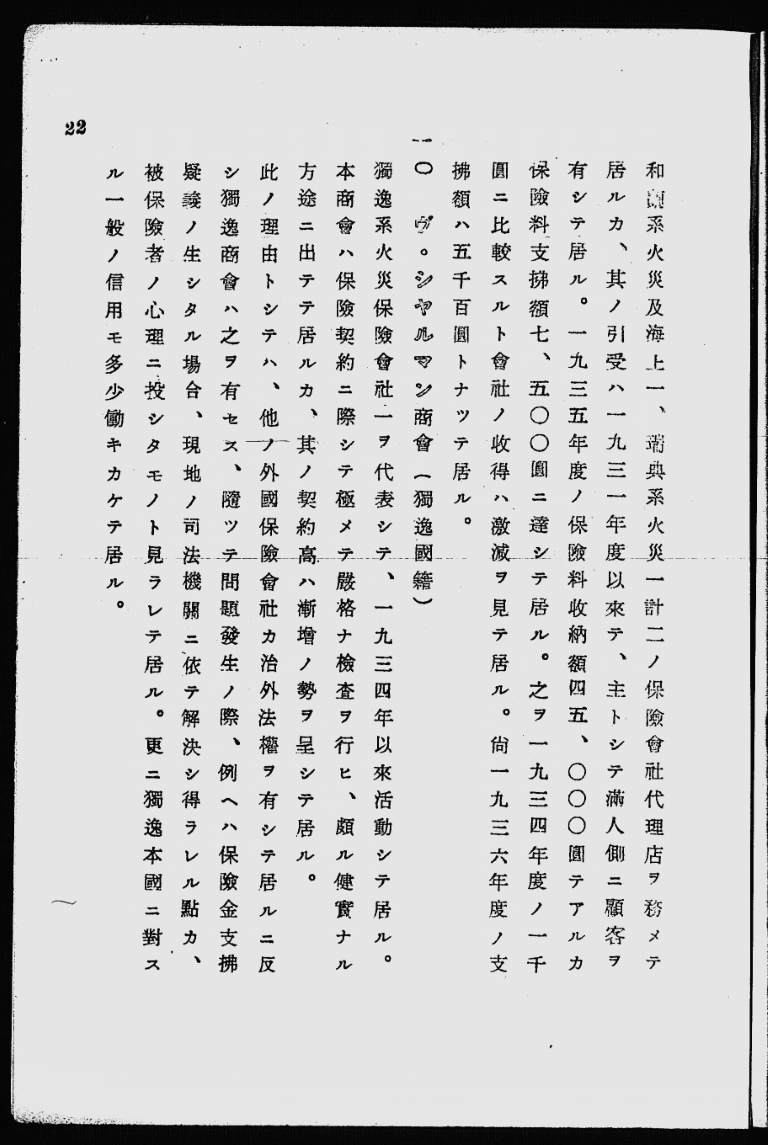 和蘭系火災及海上一、瑞典系火災一計二ノ保險會社代理店ヲ務メテ
居ルカ、其ノ引受ハ一九三一年度以來テ、主トシテ滿人側ニ顧客ヲ
有シテ居ル。一九三五年度ノ保險料收納額四五、〇〇〇圓テアルカ
保險料支拂額七、五〇〇圓ニ達シテ居ル。之ヲ一九三四年度ノ一千
圓ニ比較スルト會社ノ收得ハ激減ヲ見テ居ル。尙一九三六年度ノ支
拂額ハ五千百圓トナツテ居ル。
一〇 ヴ。シヤルマン商會(獨逸國籍)
獨逸系火災保險會社一ヲ代表シテ、一九三四年以來活動シテ居ル。
本商會ハ保險契約ニ際シテ極メテ嚴格ナ檢査ヲ行ヒ、頗ル健實ナル
方途ニ出テテ居ルカ、其ノ契約高ハ漸增ノ勢ヲ呈シテ居ル。
此ノ理由トシテハ、他ノ外國保險會社カ治外法權ヲ有シテ居ルニ反
シ獨逸商會ハ之ヲ有セス、隨ツテ問題發生ノ際、例ヘハ保險金支拂
疑義ノ生シタル場合、現地ノ司法機關ニ依テ解決シ得ラレル點カ、
被保險者ノ心理ニ投シタモノト見ラレテ居ル。更ニ獨逸本國ニ對ス
ル一般ノ信用モ多少働キカケテ居ル。
22